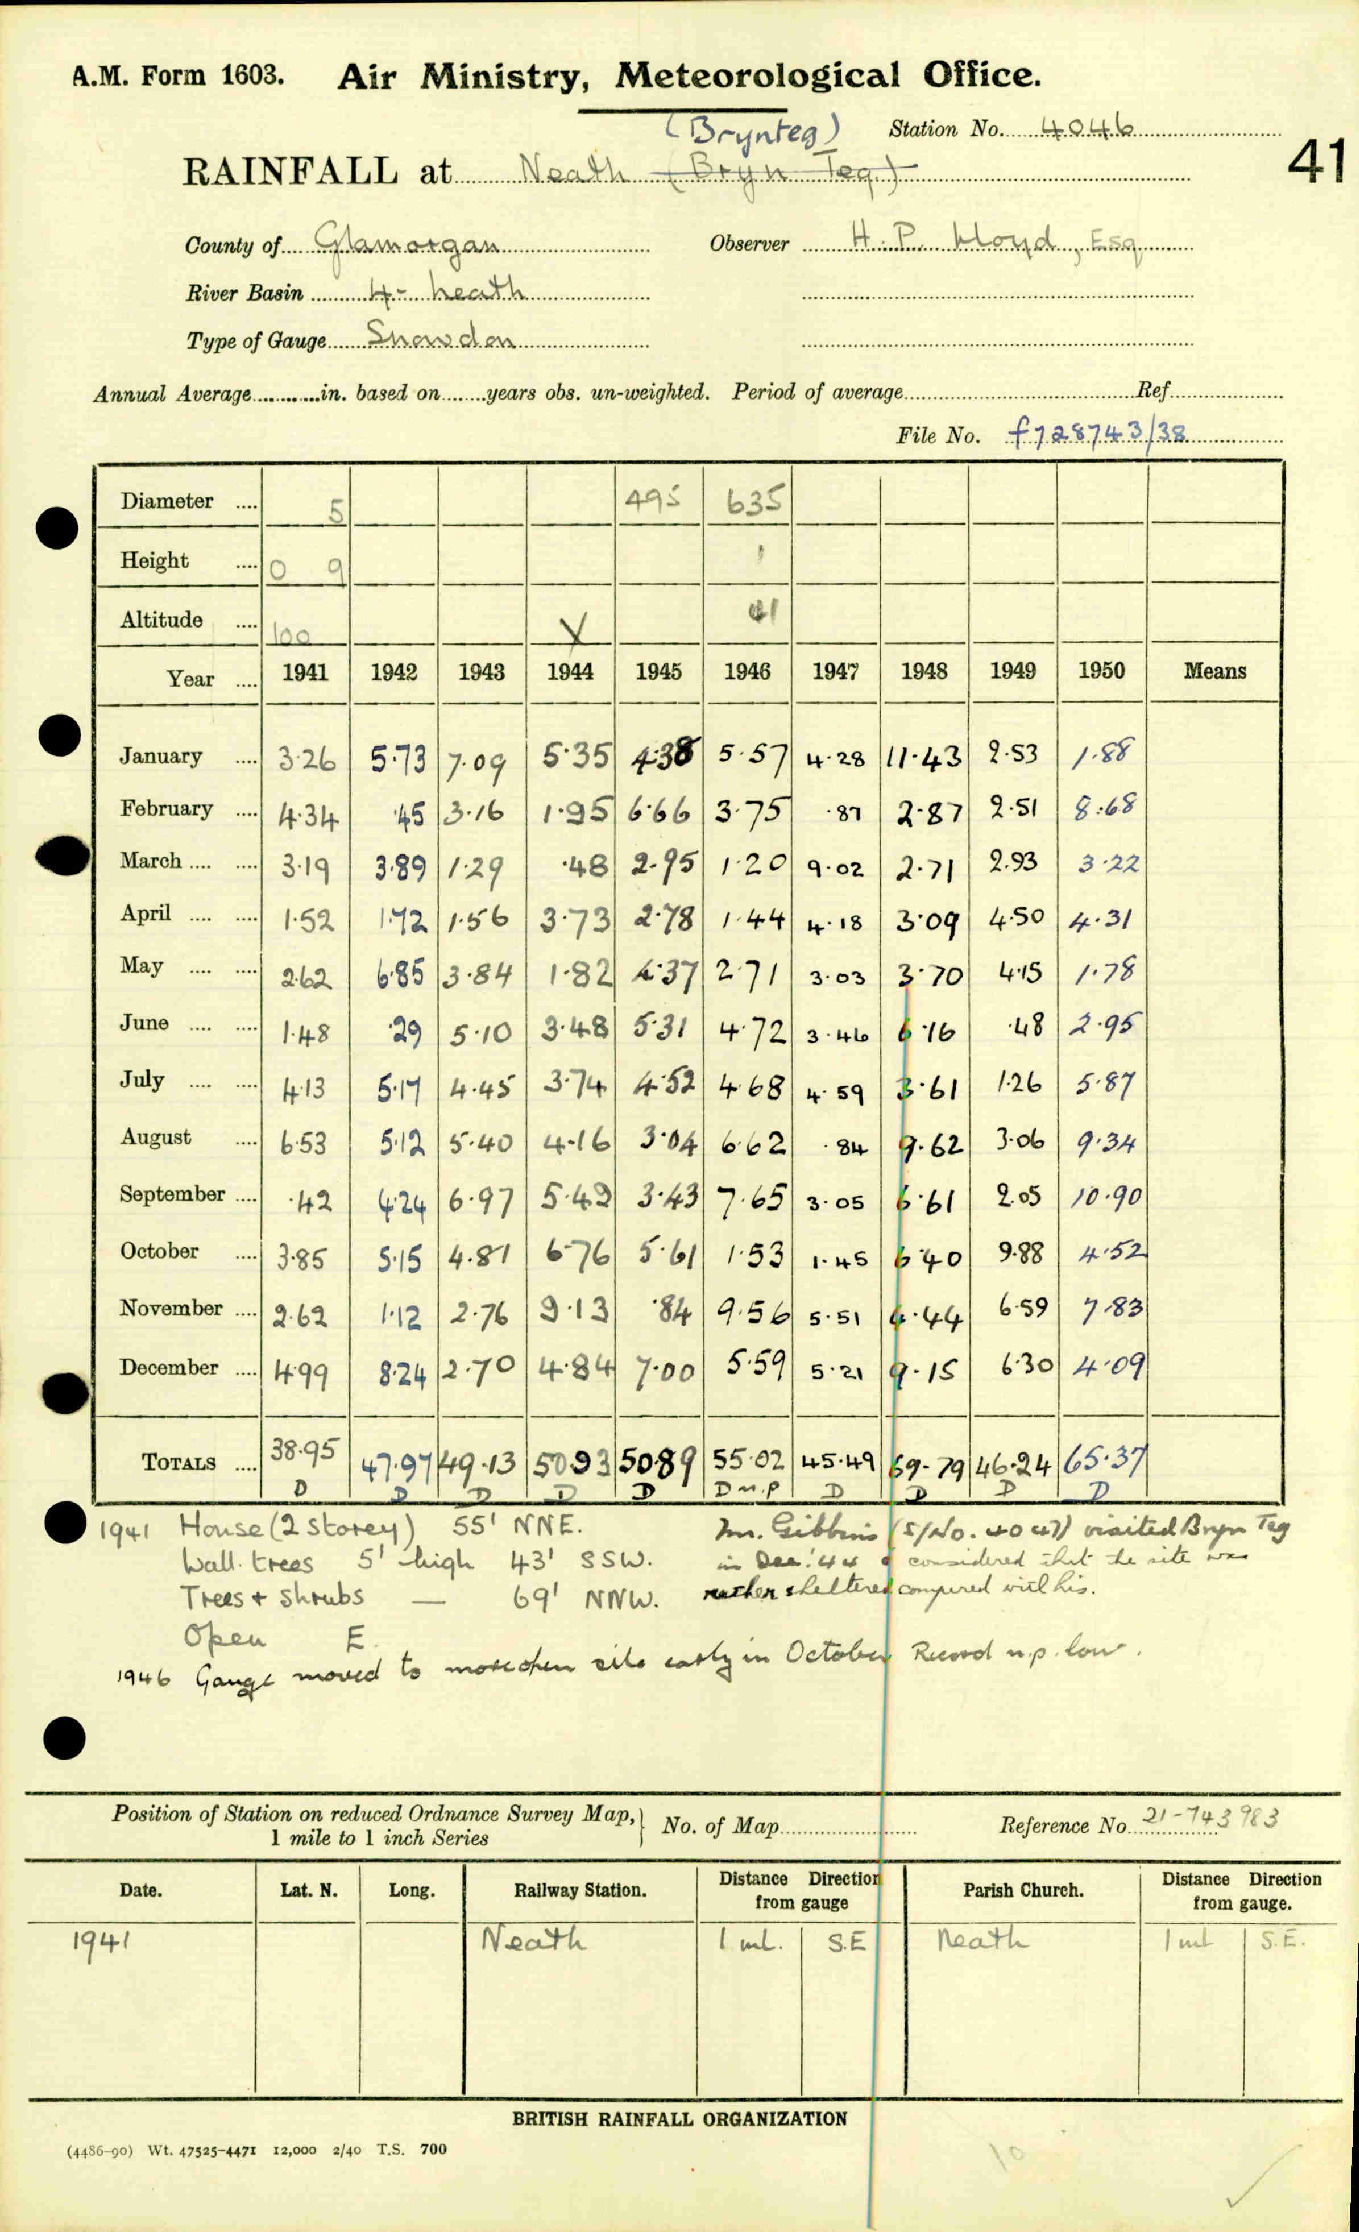 A.M. Form 1603. Air Ministry, Meteorological Office.
(Brynteg) Station No. 4046
41
RAINFALL at Neath (Bryn Teg)
County of Glamorgan Observer H. P. Lloyd, Esq
River Basin 4- Neath
Type of Gauge Snowdon
Annual Average in. based on years obs. un-weighted. Period of average Ref
File No. f728743/38
Diameter 5 495 635
Height 0 9 1
Altitude 100 41
Year 1941 1942 1943 1944 1945 1946 1947 1948 1949 1950 Means
January 3.26 5.73 7.09 5.35 4.38 5.57 4.28 11.43 2.53 1.88
February 4.34 .45 3.16 1.95 6.66 3.75 .87 2.87 2.51 8.68
March 3.19 3.89 1.29 .48 2.95 1.20 9.02 2.71 2.93 3.22
April 1.52 1.72 1.56 3.73 2.78 1.44 4.18 3.09 4.50 4.31
May 2.62 6.85 3.84 1.82 4.37 2.71 3.03 3.70 4.15 1.78
June 1.48 .29 5.10 3.48 5.31 4.72 3.46 6.16 .48 2.95
July 4.13 5.17 4.45 3.74 4.52 4.68 4.59 3.61 1.26 5.87
August 6.53 5.12 5.40 4.16 3.04 6.62 .84 9.62 3.06 9.34
September .42 4.24 6.97 5.49 3.43 7.65 3.05 6.61 2.05 10.90
October 3.85 5.15 4.81 6.76 5.61 1.53 1.45 6.40 9.88 4.52
November 2.62 1.12 2.76 9.13 .84 9.56 5.51 4.44 6.59 7.83
December 4.99 8.24 2.70 4.84 7.00 5.59 5.21 9.15 6.30 4.09
TOTALS 38.95 47.97 49.13 50.93 50.89 55.02 45.49 69.79 46.24 65.37
D D D D D D n.p D D D D
1941 House (2 storey) 55' NNE.
Wall trees 5' high 43' SSW.
Trees + Shrubs — 69' NNW.
Open E
Mr. Gibbins (S/No. 4047) visited Bryn Teg
in Dec. '44 & considered that the site was
rather sheltered compared with his.
1946 Gauge moved to more open site early in October Record n.p. low.
Position of Station on reduced Ordnance Survey Map,
1 mile to 1 inch Series
No. of Map Reference No 21-743983
Date. Lat. N. Long. Railway Station. Distance Direction from gauge Parish Church. Distance Direction from gauge.
1941 Neath 1 ml. S.E Neath 1 ml S.E.
BRITISH RAINFALL ORGANIZATION
(4486-90) Wt. 47525-4471 12,000 2/40 T.S. 700
10